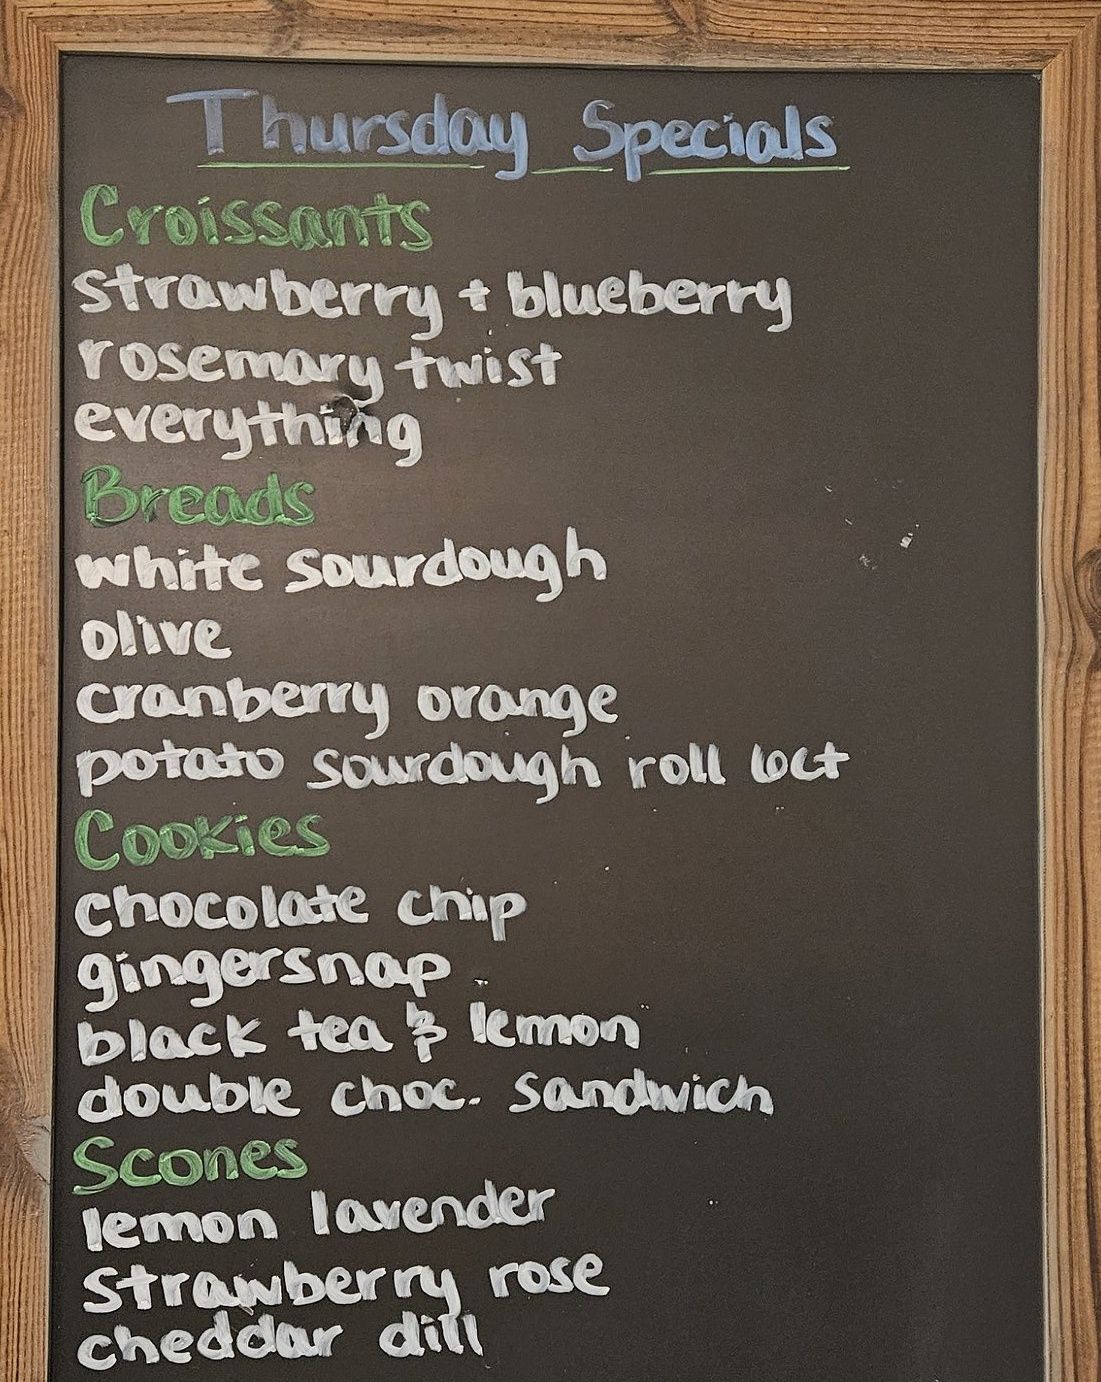 Thursday Specials
Croissants
strawberry + blueberry
rosemary twist
everything
Breads
white sourdough
olive
cranberry orange
potato sourdough roll 6ct
Cookies
chocolate chip
gingersnap
black tea & lemon
double choc. sandwich
Scones
lemon lavender
strawberry rose
cheddar dill